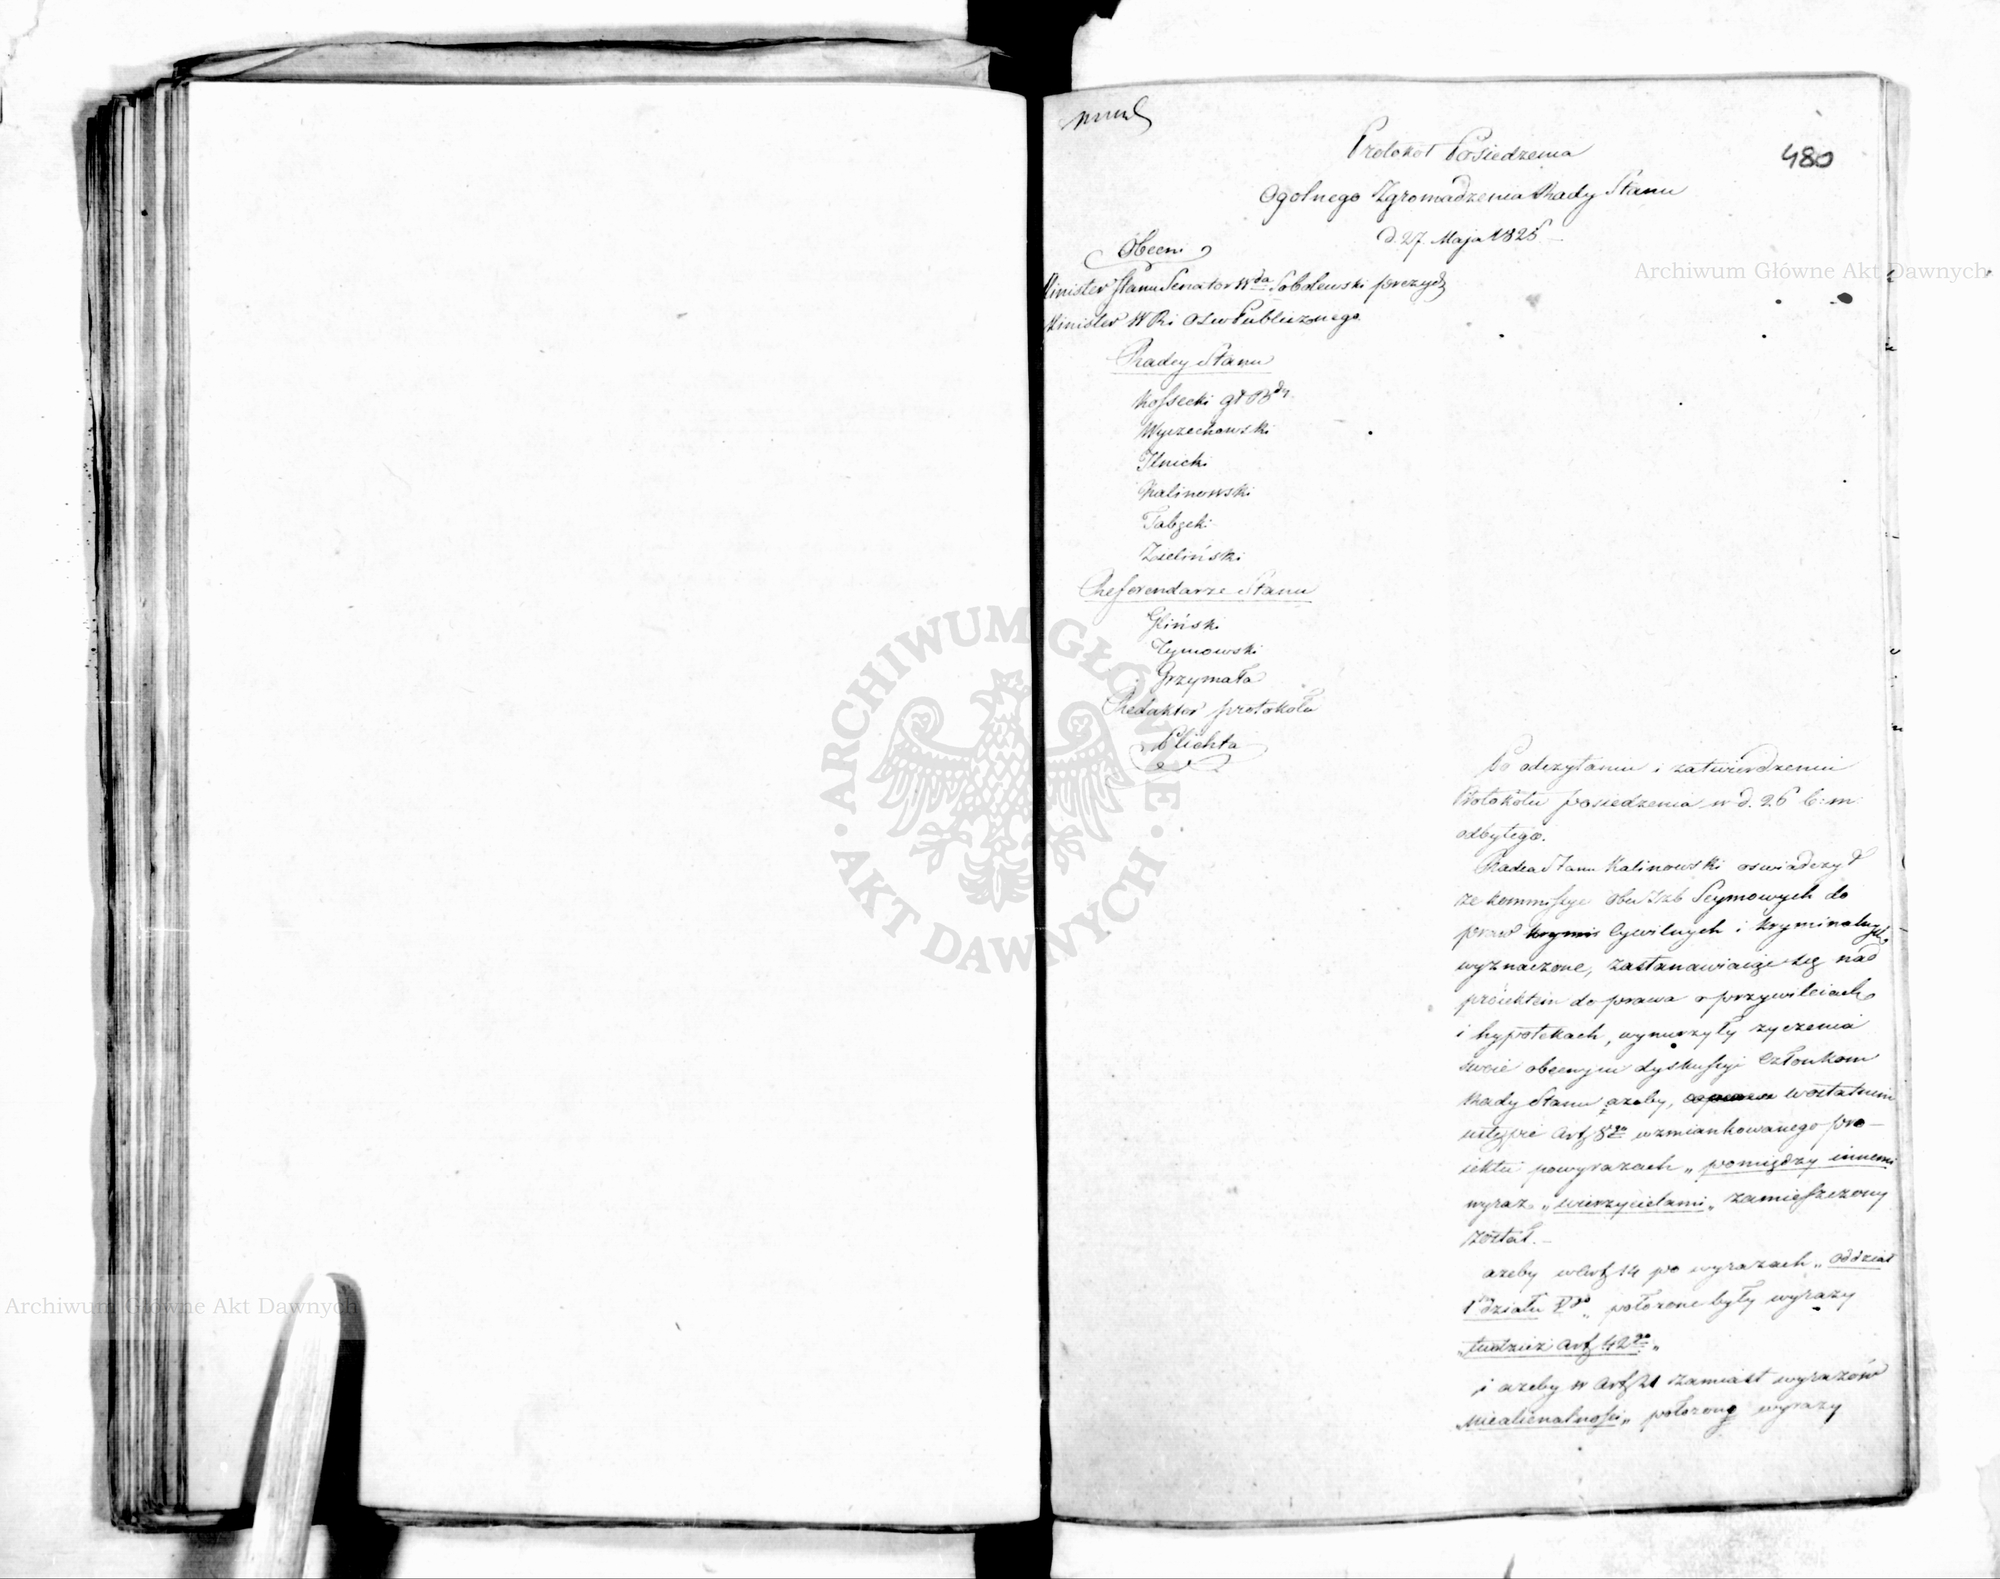 480
Protokół Posiedzenia
Ogolnego Zgromadzenia Rady Stanu
d. 27. Maja 1825 –
Obecni
Minister Stanu Senator Wda Sobolewski prezyd
Minister W R i Osw Publicznego
Radcy Stanu
Kossecki
Wyczechowski
Ilnicki
Kalinowski
Zieliński
Referendarze Stanu
Gliński
Tymowski
Grzymała
Redaktor protokółu
Plichta
Po odczytaniu i zatwierdzeniu
Protokołu posiedzenia w d. 26 b: m:
odbytego.
Radca Stanu Kalinowski oswiadczył
ze kommissye obu Izb Seymowych do
praw Cywilnych i kryminalnych
wyznaczone, zastanawiaiąc się nad
proiektem do prawa o przywileiach
i hypotekach, wynurzyły zyczenia
swoie obecnym dyskussyi Członkom
Rady Stanu azeby, w ostatnim
ustępie Art 8go wzmiankowanego pro-
iektu po wyrazach „pomiędzy innemi
wyraz „wierzycielami„ zamieszczony
został. –
azeby w Art 14 po wyrazach „Oddział
1 działu „ połozone były wyrazy
„tudzież Art 42go„
i azeby w Art 21 zamiast wyrazów
„niealienalności„ połozone wyrazy
Archiwum Główne Akt Dawnych
Archiwum Główne Akt Dawnych
ARCHIWUM GŁÓWNE AKT DAWNYCH